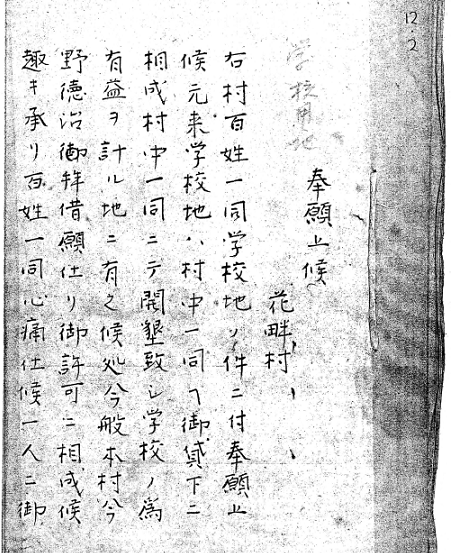 12.2
学校用地
奉願上候
花畔村
右村百姓一同学校地ノ件ニ付奉願上
候元来学校地ハ村中一同ヘ御貸下ニ
相成村中一同ニテ開墾致シ学校ノ為
有益ヲ計ル地ニ有之候処今般本村今
野徳治御拝借願仕リ御許可ニ相成候
趣キ承リ百姓一同心痛仕候一人ニ御